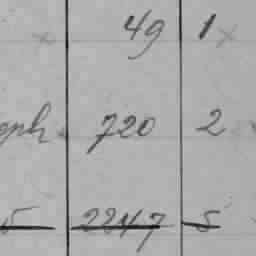 49 1
720 2
5 2247 5